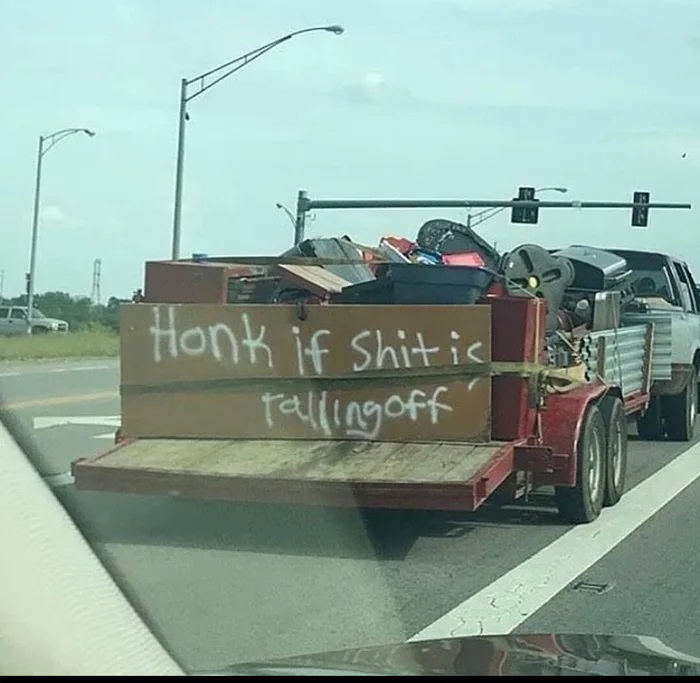 Honk if Shit is
falling off